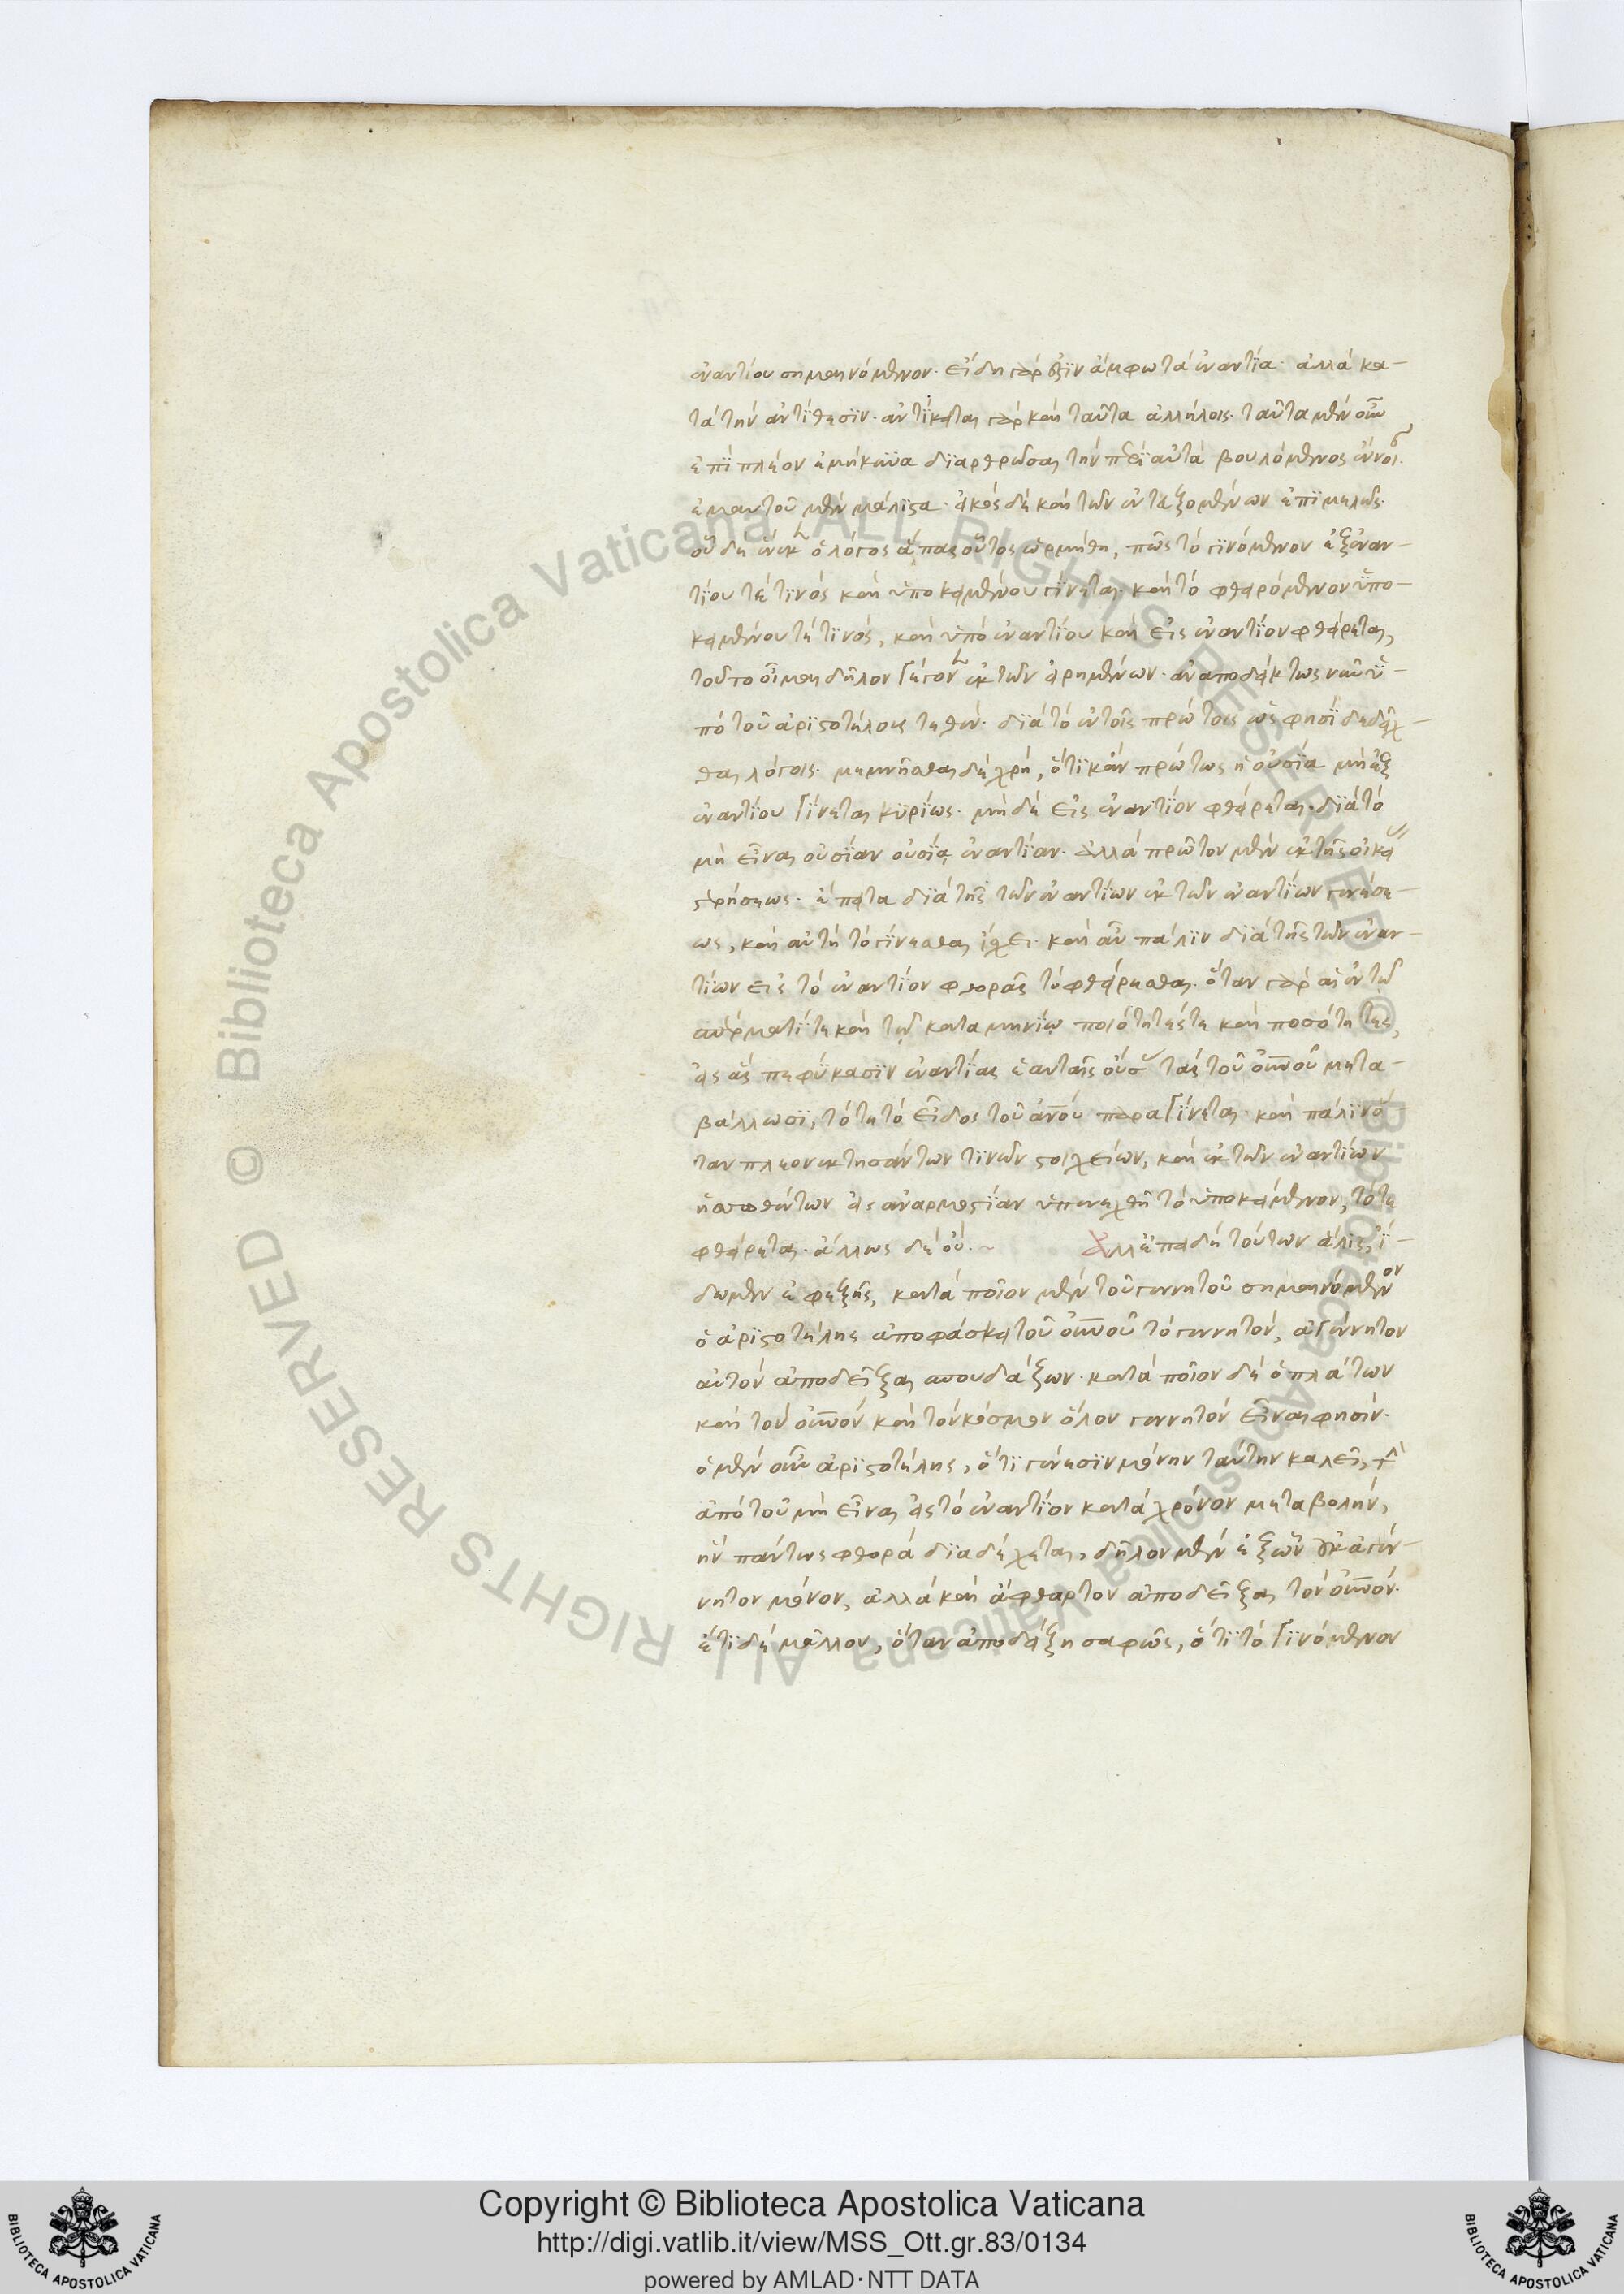 ἐναντίου σημαινόμενον. εἴδη γάρ ἐστιν ἄμφω τὰ ἐναντία. ἀλλὰ κα-
τὰ τὴν ἀντίθεσιν. ἀντίκειται γὰρ καὶ ταῦτα ἀλλήλοις. ταῦτα μὲν οὖν
ἐπὶ πλέον ἐμήκυνα διαρθρῶσαι τὴν περὶ αὐτὰ βουλόμενος ἔννοιαν.
ἐμαυτοῦ μὲν μάλιστα. εἰκὸς δὲ καὶ τῶν ἐντευξομένων ἐπιμελῶς.
οὗ δὲ ἕνεκα ὁ λόγος ἅπας οὗτος ὡρμήθη, πῶς τὸ γινόμενον ἐξ ἐναν-
τίου τέ τινος καὶ ὑποκειμένου γίνεται. καὶ τὸ φθειρόμενον ὑπο-
κειμένου τέ τινος, καὶ ὑπὸ ἐναντίου καὶ εἰς ἐναντίον φθείρεται,
τοῦτο οἶμαι δῆλον γέγονεν ἐκ τῶν εἰρημένων. ἀναποδείκτως νῦν ὑ-
πὸ τοῦ ἀριστοτέλους τεθέν. διὰ τὸ ἐν τοῖς πρώτοις ὥς φησι δεδεῖχ-
θαι λόγοις. μεμνῆσθαι δὲ χρή, ὅτι κἂν πρώτως ἡ οὐσία μὴ ἐξ
ἐναντίου γίνεται κυρίως. μηδὲ εἰς ἐναντίον φθείρεται. διὰ τὸ
μὴ εἶναι οὐσίαν οὐσίᾳ ἐναντίαν. ἀλλὰ πρῶτον μὲν ἐκ τῆς οἰκείας
στερήσεως. ἔπειτα διὰ τῆς τῶν ἐναντίων ἐκ τῶν ἐναντίων γενέσε-
ως, καὶ αὐτὴ τὸ γίνεσθαι ἴσχει. καὶ αὖ πάλιν διὰ τῆς τῶν ἐναν-
τίων εἰς τὸ ἐναντίον φθορᾶς τὸ φθείρεσθαι. ὅταν γὰρ αἱ ἐν τῷ
σπέρματί τε καὶ τῷ καταμηνίῳ ποιότητές τε καὶ ποσότητες,
εἰς ἃς πεφύκασιν ἐναντίας ἑαυταῖς οὔσας τὰς τοῦ ἀνθρώπου μετα-
βάλλωσι, τότε τὸ εἶδος τοῦ ἀνθρώπου παραγίνεται. καὶ πάλιν ὅ-
ταν πλεονεκτησάντων τινῶν στοιχείων, καὶ ἐκ τῶν ἐναντίων
ἡσσηθέντων εἰς ἀναρμοστίαν ὑπενεχθῇ τὸ ὑποκείμενον, τότε
φθείρεται. ἄλλως δὲ οὔ. Ἀλλ' ἐπειδὴ τούτων ἅλις, ἴ-
δωμεν ἐφεξῆς, κατὰ ποῖον μὲν τοῦ γενητοῦ σημαινόμενον
ὁ ἀριστοτέλης ἀποφάσκει τοῦ οὐρανοῦ τὸ γενητόν, ἀγένητον
αὐτὸν ἀποδεῖξαι σπουδάζων. κατὰ ποῖον δὲ ὁ πλάτων
καὶ τὸν οὐρανὸν καὶ τὸν κόσμον ὅλον γενητὸν εἶναι φησίν.
ὁ μὲν οὖν ἀριστοτέλης, ὅτι γένεσιν μόνην ταύτην καλεῖ, τὴν
ἀπὸ τοῦ μὴ εἶναι εἰς τὸ ἐναντίον κατὰ χρόνον μεταβολήν,
ἣν πάντως φθορὰ διαδέχεται, δῆλον μὲν ἐξ ὧν οὐκ ἀγέν-
νητον μόνον, ἀλλὰ καὶ ἄφθαρτον ἀποδεῖξαι τὸν οὐρανόν.
ἔτι δὲ μᾶλλον, ὅταν ἀποδείξῃ σαφῶς, ὅτι τὸ γινόμενον
Copyright © Biblioteca Apostolica Vaticana
http://digi.vatlib.it/view/MSS_Ott.gr.83/0134
powered by AMLAD·NTT DATA